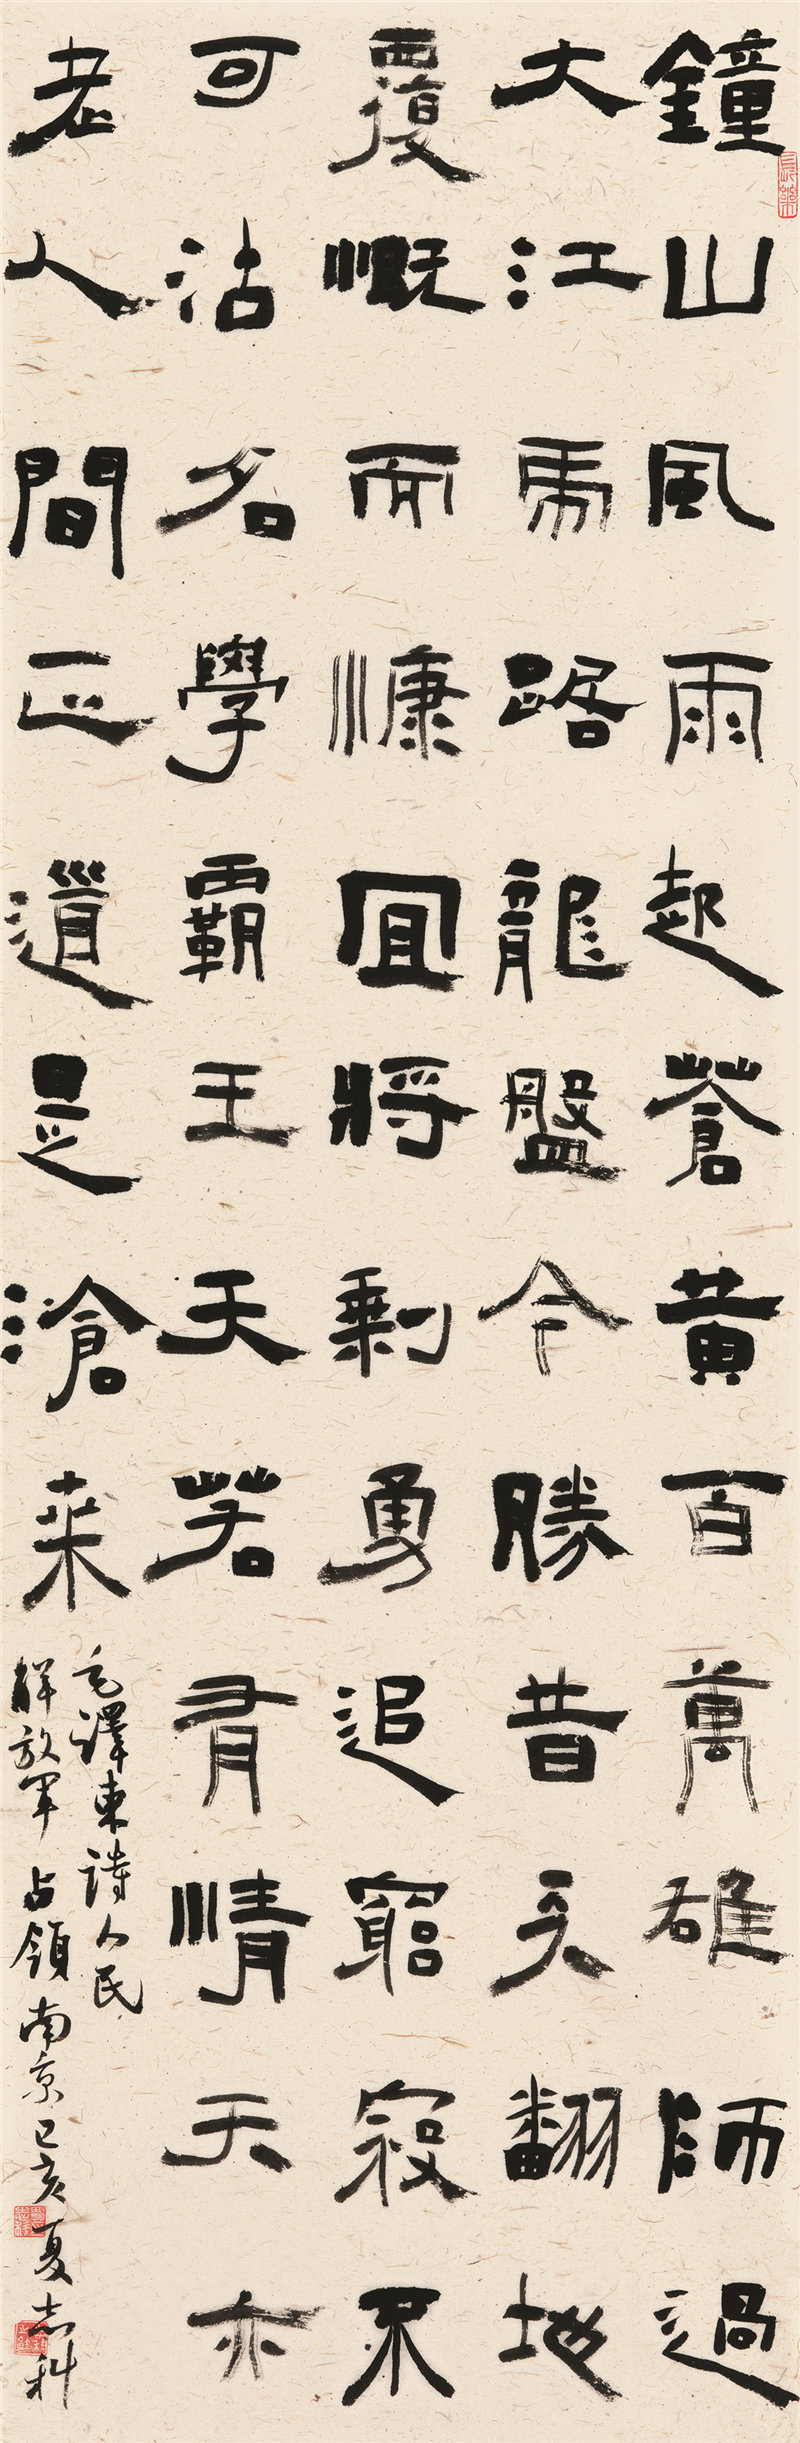 鐘山風雨起蒼黄百萬雄師過
大江虎踞龍盤今勝昔天翻地
覆慨而慷宜將剩勇追窮寇不
可沽名學霸王天若有情天亦
老人間正道是滄桒
毛澤東詩人民
解放軍占領南京己亥夏志科
長樂